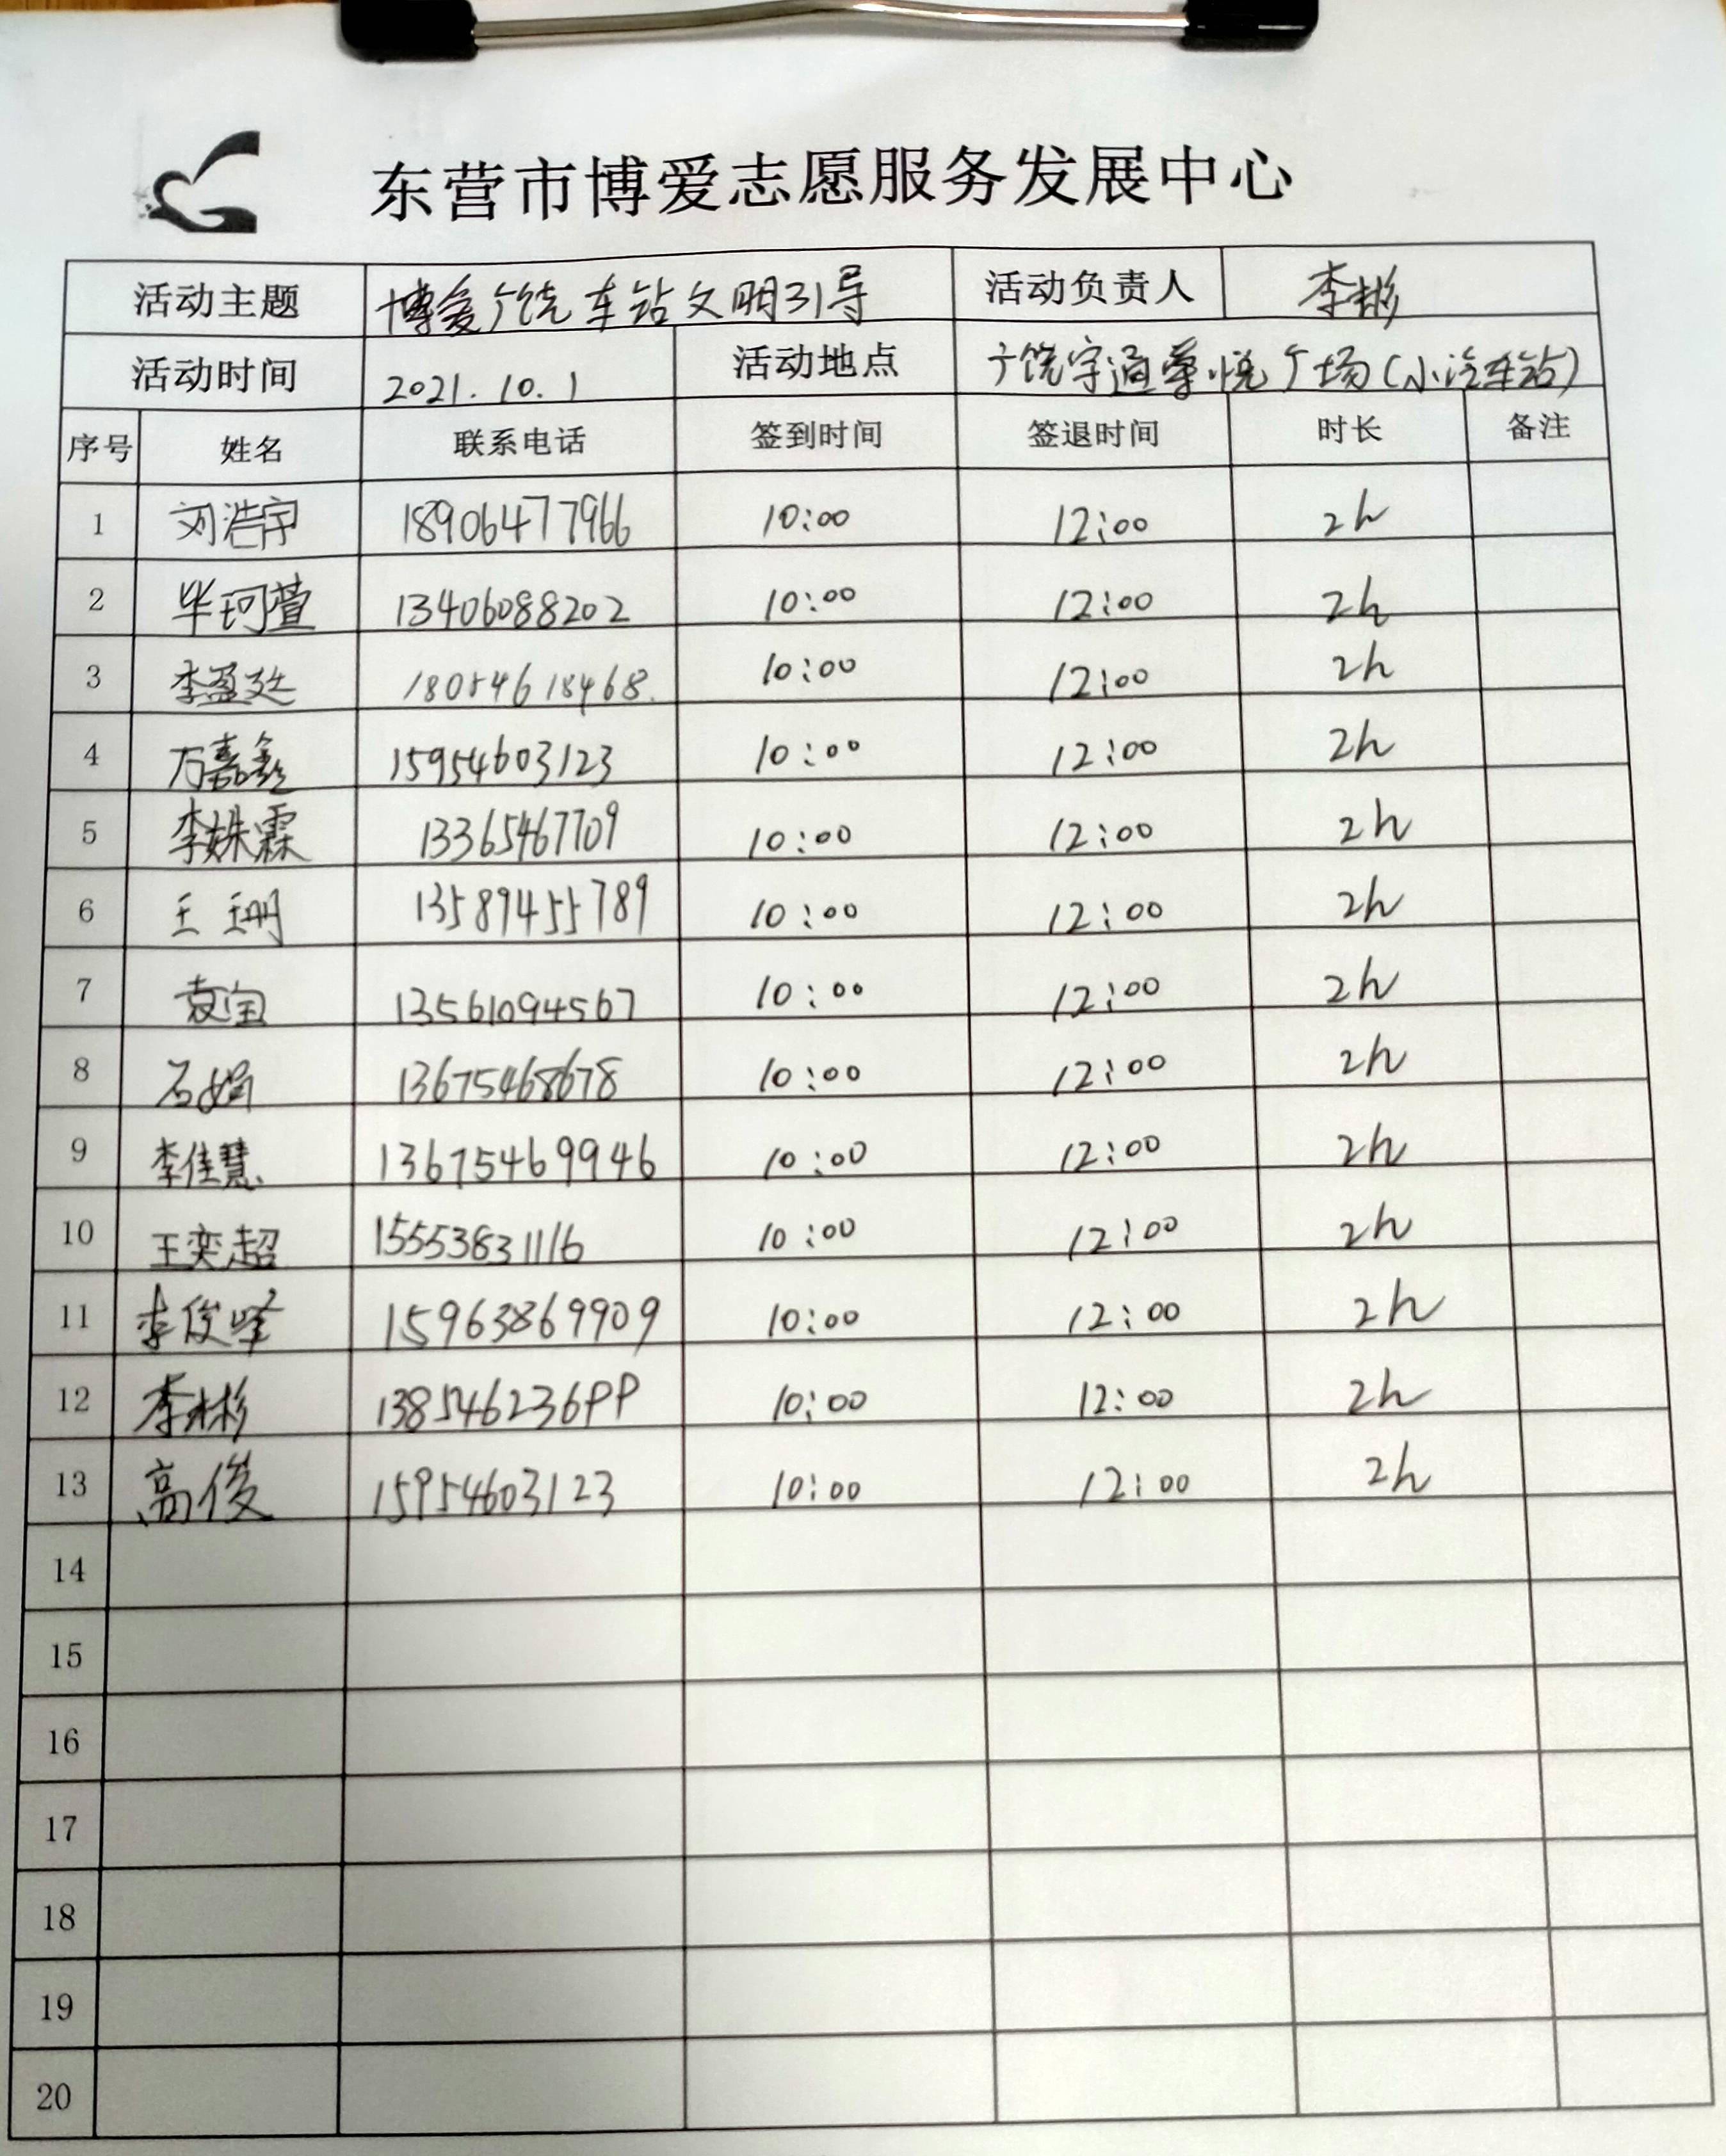 东营市博爱志愿服务发展中心
活动主题 博爱广饶车站文明引导 活动负责人 李彬
活动时间 2021.10.1 活动地点 广饶宇通尊悦广场(小汽车站)
序号 姓名 联系电话 签到时间 签退时间 时长 备注
1 刘浩宇 18906477966 10:00 12:00 2h
2 毕珂萱 13406088202 10:00 12:00 2h
3 李盈廷 18054618468 10:00 12:00 2h
4 万嘉鑫 15954603123 10:00 12:00 2h
5 李姝霖 13365467709 10:00 12:00 2h
6 王珊 13589455789 10:00 12:00 2h
7 袁宝 13561094567 10:00 12:00 2h
8 石娟 13675468678 10:00 12:00 2h
9 李佳慧 13675469946 10:00 12:00 2h
10 王奕超 15553831116 10:00 12:00 2h
11 李俊峰 15963869909 10:00 12:00 2h
12 李彬 13854623699 10:00 12:00 2h
13 高俊 15954603123 10:00 12:00 2h
14
15
16
17
18
19
20